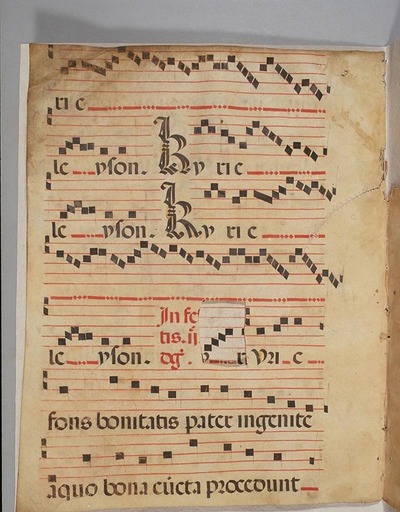 ri e
le yson. Ky ri e
le yson. Ky ri e
In fe
tis. ij
le yson. dg̃. ri yri e
fons bonitatis pater ingenite
a quo bona cūcta procedunt